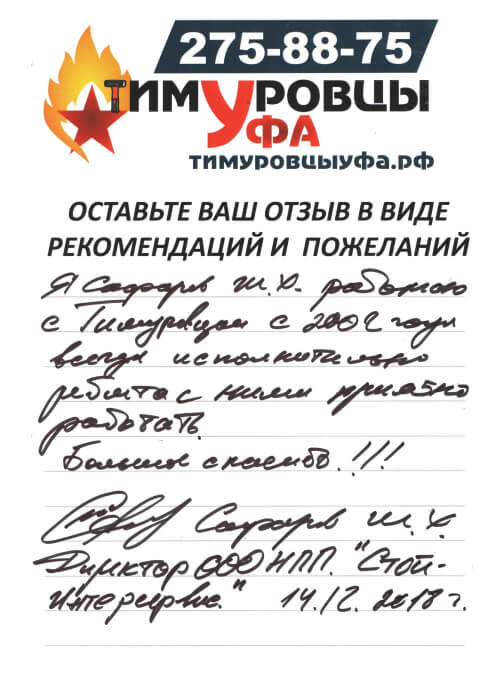 275-88-75
ТИМУРОВЦЫ
УФА
ТИМУРОВЦЫУФА.РФ
ОСТАВЬТЕ ВАШ ОТЗЫВ В ВИДЕ
РЕКОМЕНДАЦИЙ И ПОЖЕЛАНИЙ
Я Сафаров Ш.Х. работаю
с Тимуровцами с 2002 года
всегда исполнительно
ребята с ними приятно
работать.
Большое спасибо!!!
Сафаров Ш.Х.
Директор ООО НПП. "Стой-
интерсервис." 14.12.2018 г.